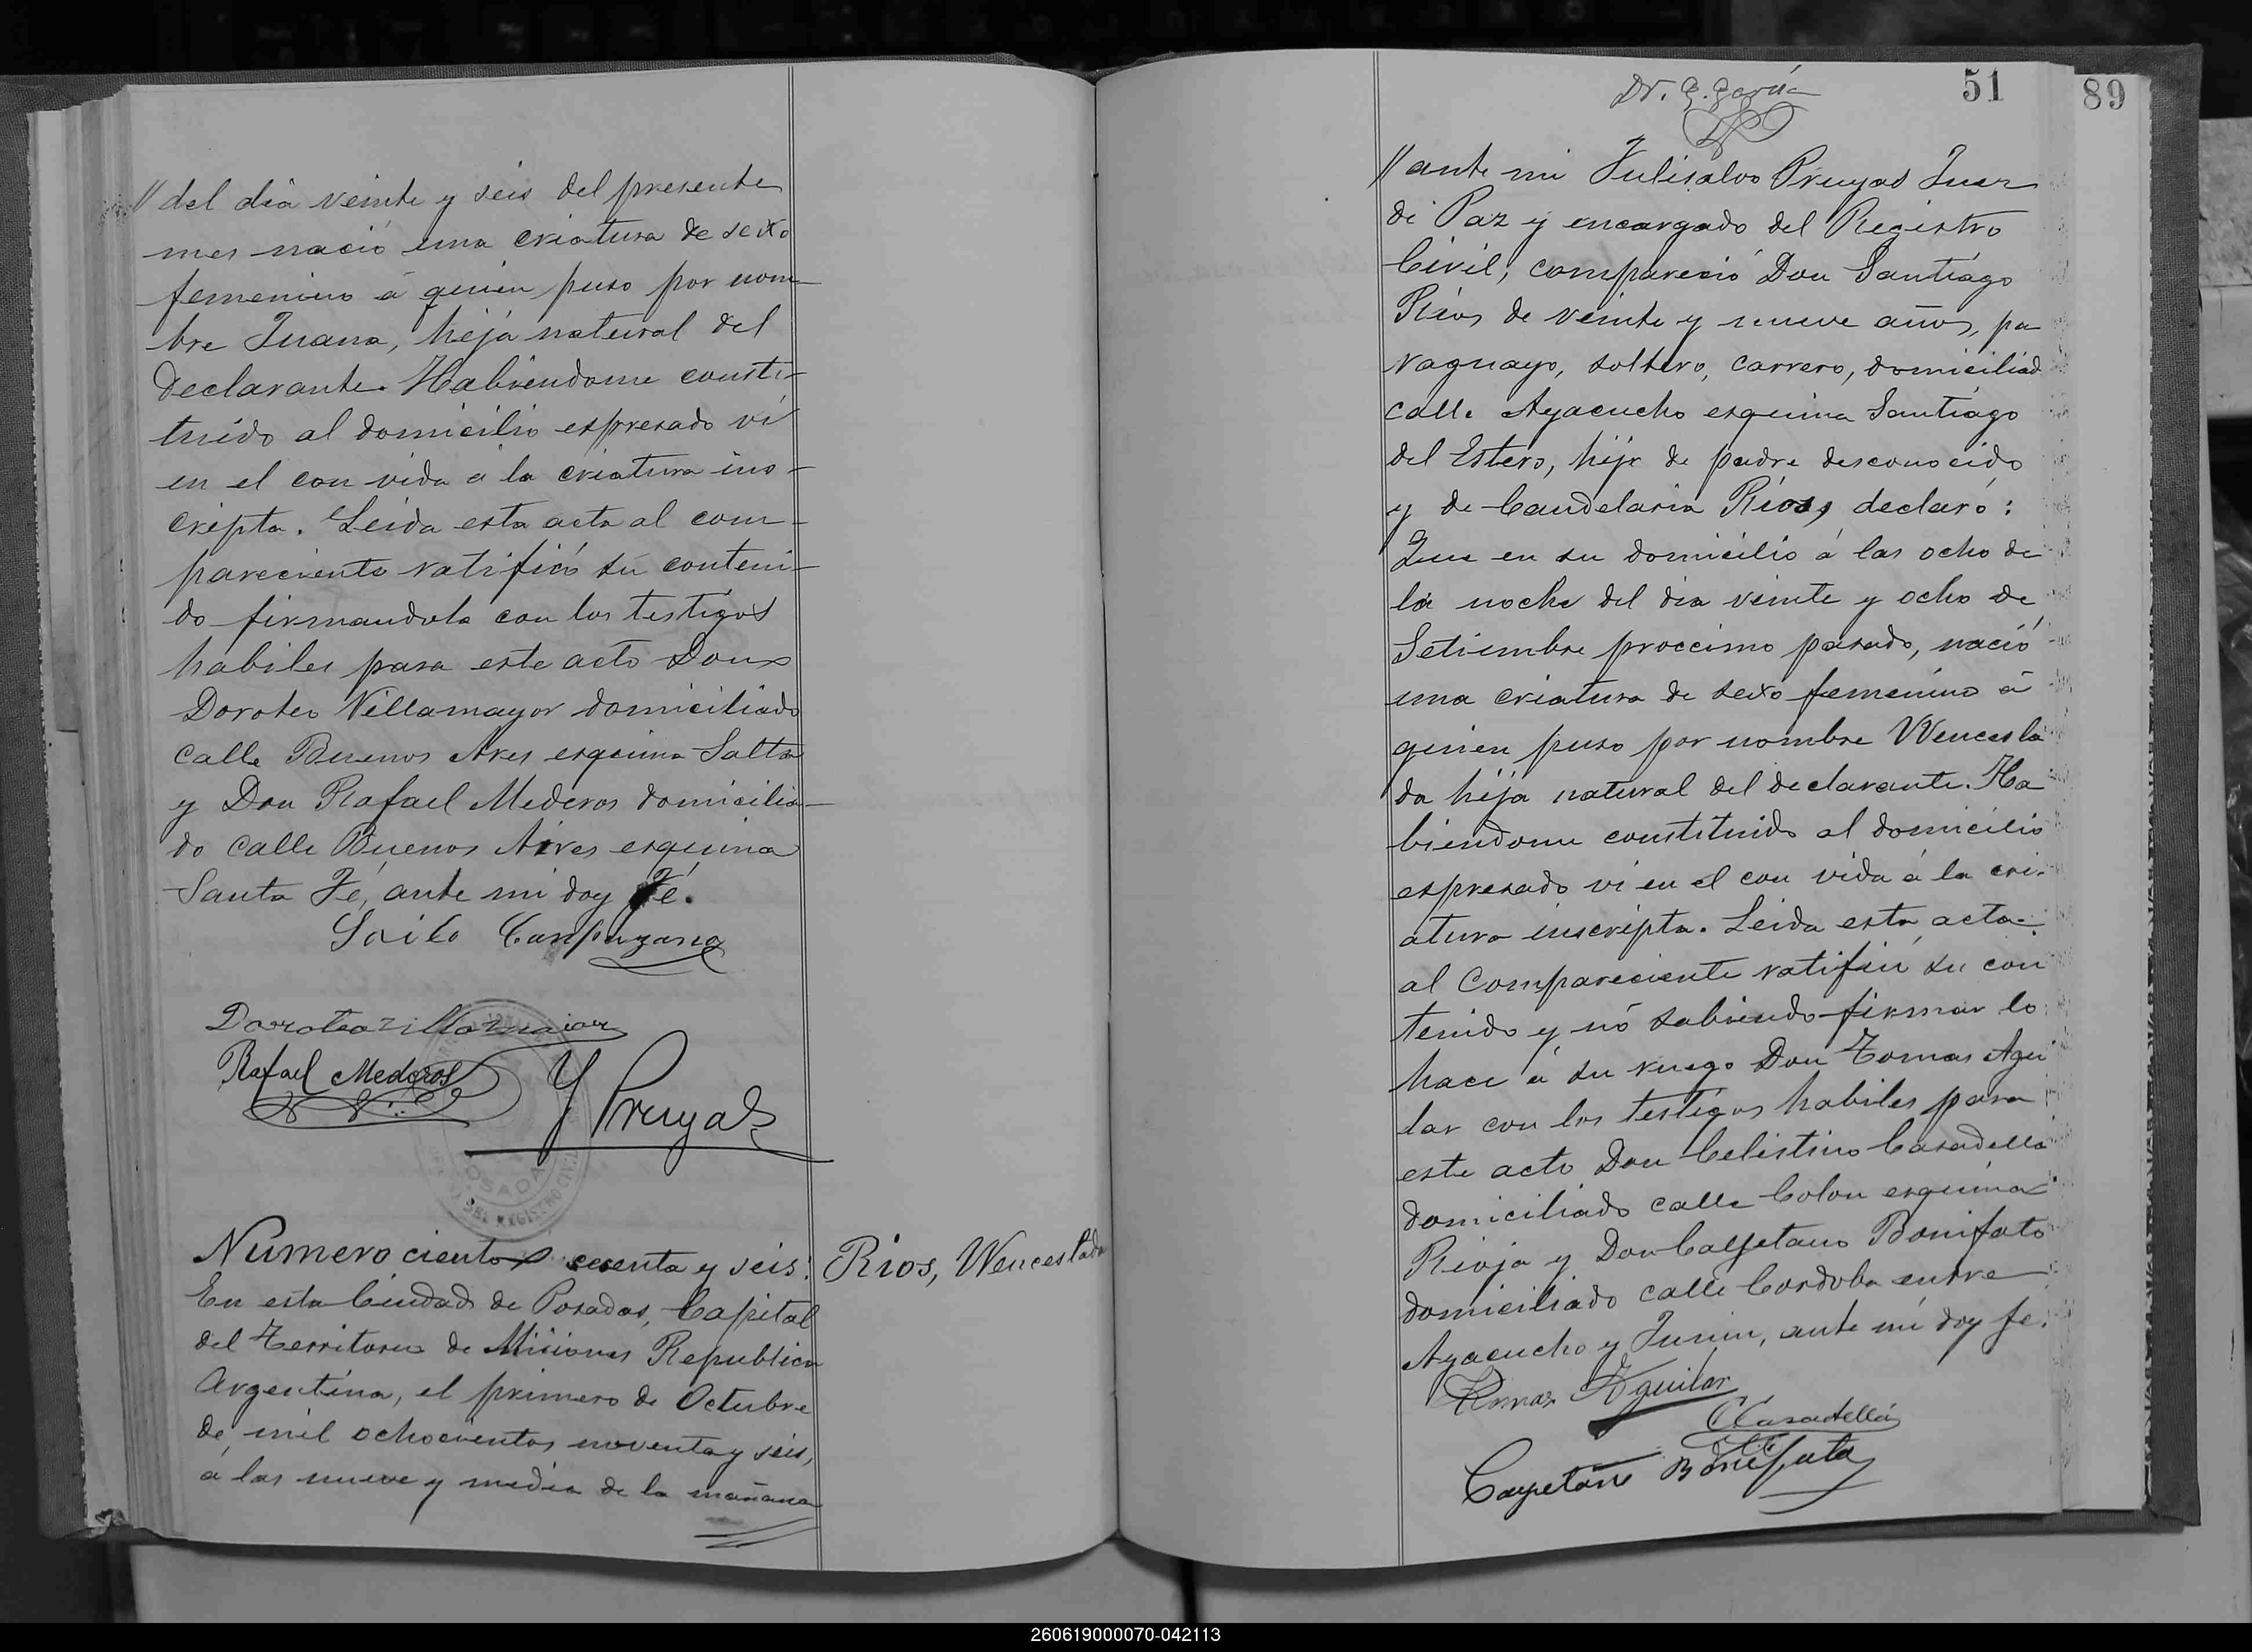 // del dia veinte y seis del presente
mes nació una criatura de sexo
femenino á quien puso por nom-
bre Juana, hija natural del
declarante. Habiendome consti-
tuido al domicilio espresado vi
en el con vida a la criatura ins-
cripta. Leida esta acta al com-
pareciente ratificó su conteni-
do firmandola con los testigos
habiles para este acto Don
Doroteo Villamayor domiciliado
calle Buenos Aires esquina Salta
y Don Rafael Mederos domicilia-
do calle Buenos Aires esquina
Santa Fé, ante mi doy Fé.
Doroteo Villamaior
Rafael Mederos
Pruyas
Numero ciento sesenta y seis:
Rios, Wenceslada
En esta Ciudad de Posadas, Capital
del Territorio de Misiones Republica
Argentina, el primero de Octubre
de mil ochocientos noventa y seis,
á las nueve y media de la mañana
Dr. G. García
51
89
// ante mi Pruyas Juez
de Paz y encargado del Registro
Civil, compareció Don Santiago
Rios de veinte y nueve años, pa
raguayo, soltero, carrero, domiciliad
calle Ayacucho esquina Santiago
del Estero, hijo de padre desconocido
y de Candelaria Rios, declaró:
Que en su domicilio á las ocho de
la noche del dia veinte y ocho de
Setiembre proccimo pasado, nació
una criatura de sexo femenino á
quien puso por nombre Wencesla
da hija natural del declarante. Ha
biendome constituido al domicilio
espresado vi en el con vida á la cri-
atura inscripta. Leida esta acta
al Compareciente ratificó su con
tenido y nó sabiendo firmar lo
hace á su ruego Don Tomas Agui
lar con los testigos habiles para
este acto Don Celestino Casadella
domiciliado calle Colon esquina
Rioja y Don Cayetano Bonifato
domiciliado calle Cordoba entre
Ayacucho y Junin, ante mi doy fe.
Tomas Aguilar
CCasadellá
Cayetano Bonifato
260619000070-042113